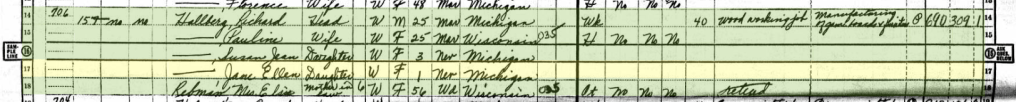 Florence Wife W F 48 Mar Michigan H No No No
14 706 15 + no no Hallberg, Richard Head W M 25 Mar Michigan Wk 40 wood working Manufacturing P 690 309 1 14
15 Pauline Wife W F 25 Mar Wisconsin 035 H No No No 15
SAMPLE LINE 16 —, Susan Jean Daughter W F 3 Nev Michigan 16 ASK BELOW
17 —, Jane Ellen Daughter W F 1 Nev Michigan 17
18 Mrs Mother in law 6 W F 56 Wd Wisconsin 035 Ot No No No retired 18
704